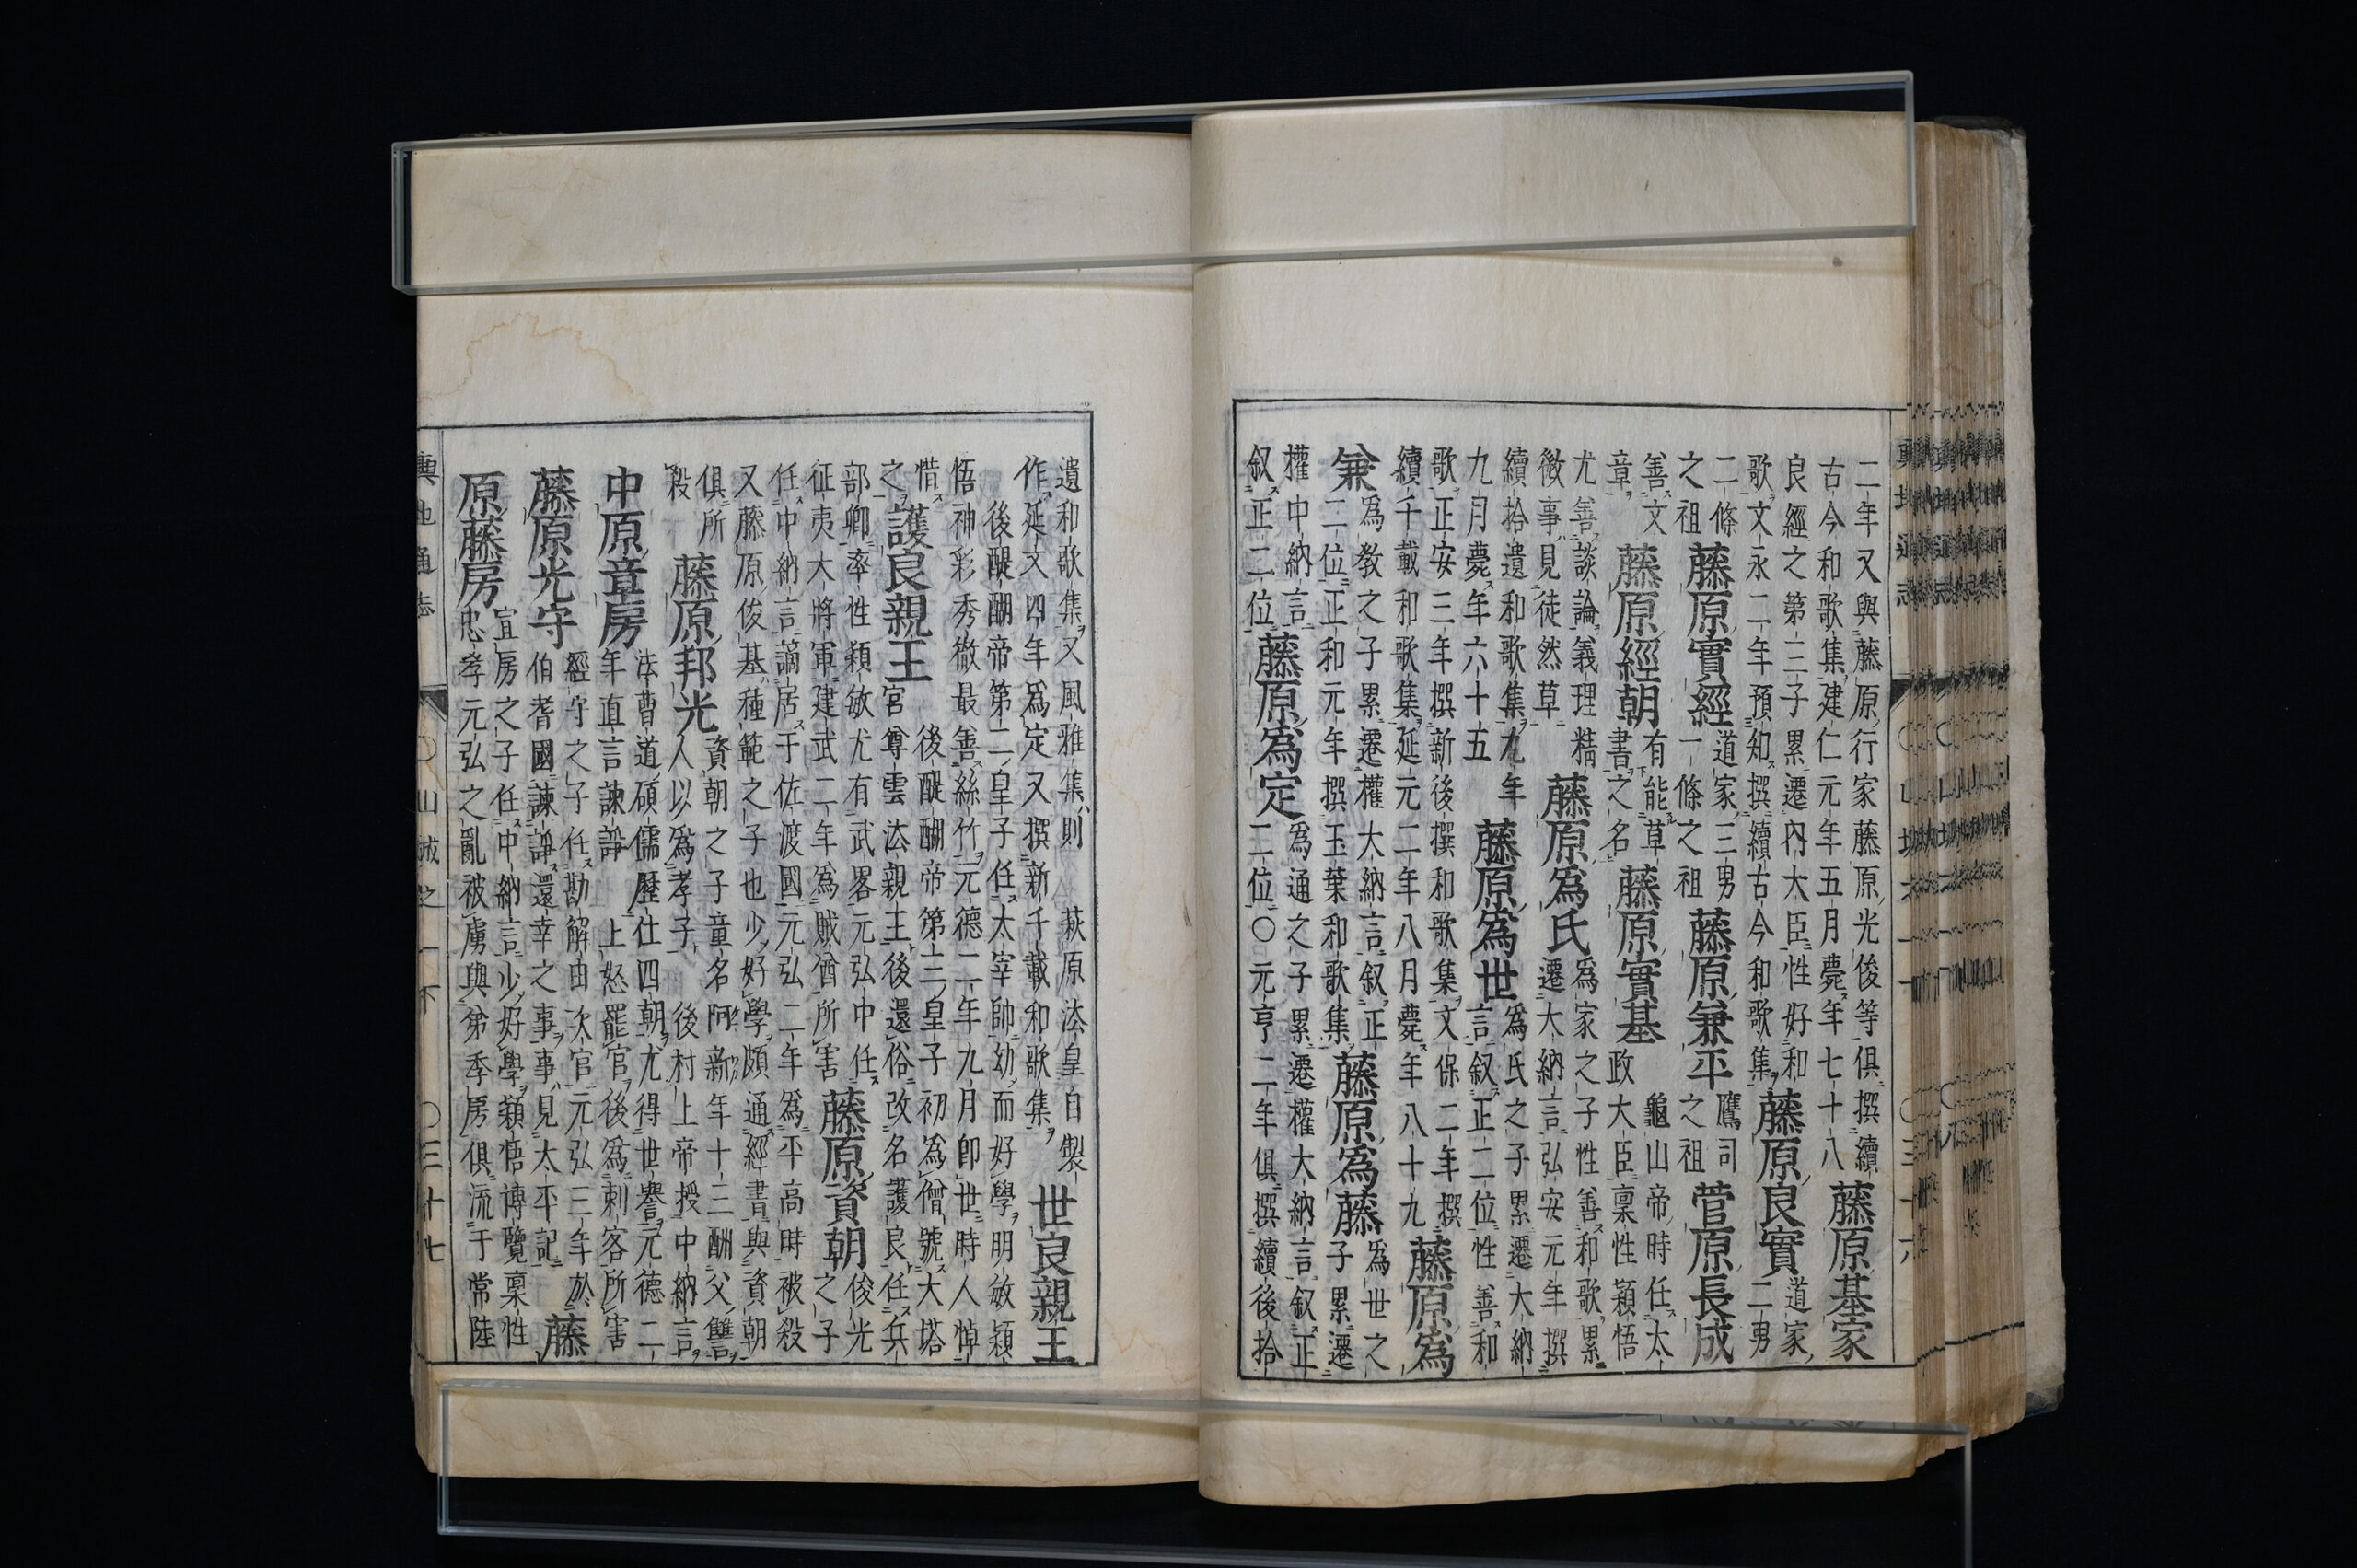 二年又與藤原行家藤原光俊等俱撰續
古今和歌集建仁元年五月薨年七十八
藤原基家
良經之第三子累遷內大臣性好和
歌文永二年預知撰續古今和歌集
藤原良實
道家
二男
二條
之祖
藤原實經
道家三男
一條之祖
藤原兼平
鷹司
之祖
菅原長成
善文
章
藤原經朝
有能草
書之名
藤原實基
龜山帝時任太
政大臣稟性穎悟
尤善談論義理精
徵事見徒然草
藤原爲氏
爲家之子性善和歌累
遷大納言弘安元年撰
續拾遺和歌集九年
九月薨年六十五
藤原爲世
爲氏之子累遷大納
言叙正二位性善和
歌正安三年撰新後撰和歌集文保二年撰
續千載和歌集延元二年八月薨年八十九
藤原爲
兼
爲教之子累遷權大納言叙正
二位正和元年撰玉葉和歌集
藤原爲藤
爲世之
子累遷
權中納言
叙正二位
藤原爲定
爲通之子累遷權大納言叙正
二位〇元亨二年俱撰續後拾
遺和歌集又風雅集則 萩原法皇自製
作延文四年爲定又撰新千載和歌集
世良親王
後醍醐帝第二皇子任太宰帥幼而好學明敏穎
悟神彩秀徹最善絲竹元德二年九月卽世時人悼
惜
之
護良親王
後醍醐帝第三皇子初爲僧號大塔
宮尊雲法親王後還俗改名護良任兵
部卿率性穎敏尤有武畧元弘中任
征夷大將軍建武二年爲賊酋所害
藤原資朝
俊光
之子
任中納言謫居于佐渡國元弘二年爲平高時被殺
又藤原俊基種範之子也少好學頗通經書與資朝
俱所
殺
藤原邦光
資朝之子童名阿新年十三酬父讐
人以爲孝子 後村上帝授中納言
中原章房
法曹道碩儒歷仕四朝尤得世譽元德二
年直言諫諍 上怒罷官後爲刺客所害
藤原光守
經守之子任勘解由次官元弘三年於
伯耆國諫諍還幸之事事見太平記
藤
原藤房
宣房之子任中納言少好學穎悟博覽稟性
忠孝元弘之亂被虜與弟季房俱流于常陸
輿地通志 〇山城之一下 〇三十七